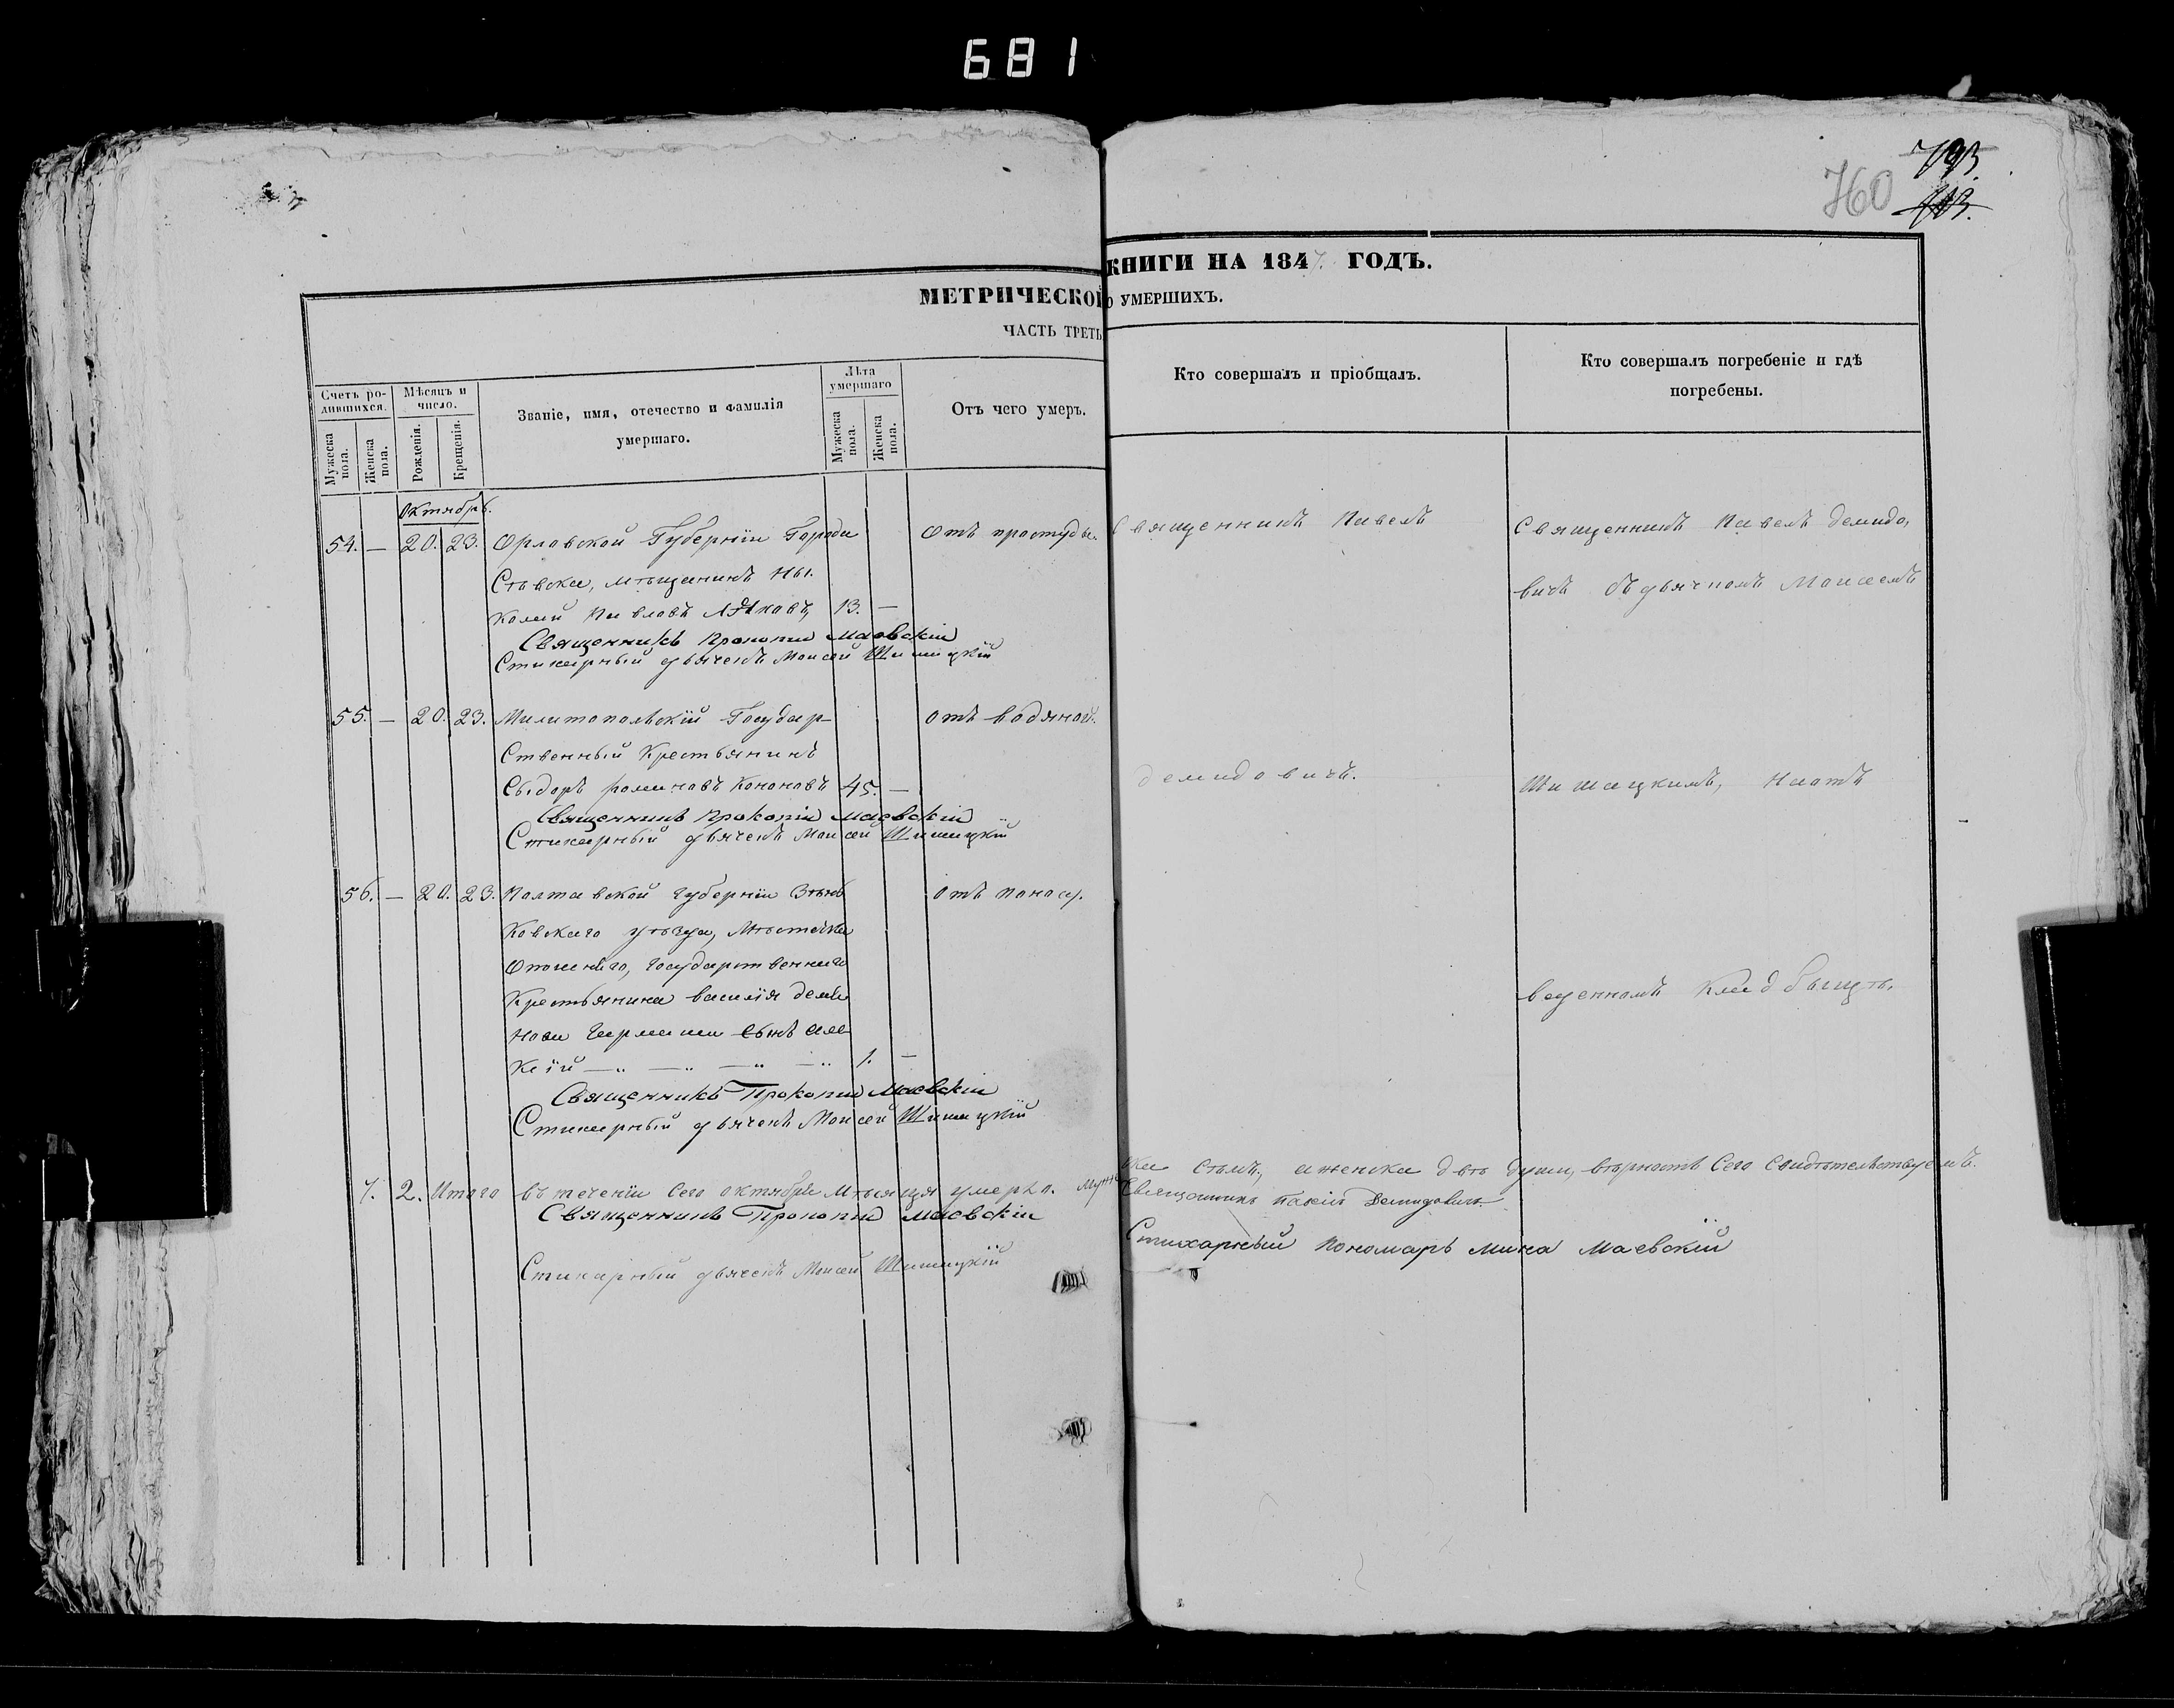 681
793.
713.
760
МЕТРИЧЕСКОЙ КНИГИ НА 1847. ГОДЪ.
ЧАСТЬ ТРЕТЬ
О УМЕРШИХЪ.
Счетъ родившихся.
Мужеска пола.
Женска пола.
Мѣсяцъ и число.
Рожденія.
Крещенія.
Званіе, имя, отечество и фамилія умершаго.
Лѣта умершаго
Мужеска пола.
Женска пола.
Отъ чего умеръ.
Кто совершалъ и пріобщалъ.
Кто совершалъ погребеніе и гдѣ погребены.
Октябрь.
54. — 20. 23. Орловской Губерніи Города
Отъ простуды.
Сѣвска, мѣщанинъ Ни-
колай Павловъ 13. —
Священникъ Прокопій Маевскій
Стихарный дьячекъ Моисей Шишацкій
55. — 20. 23. Милитопольскій Государ-
отъ водяной.
ственный Крестьянинъ
Сыдоръ фоминовъ Кононовъ 45. —
Священникъ Прокопій Маевскій
Стихарный дьячекъ Моисей Шишацкій
56. — 20. 23. Полтавской губерніи Зѣнь
отъ поносу.
ковскаго уѣзда, Мѣстечка
Опошнего, государственнаго
Крестьянина василія деми
нова сынъ Але
кѣй — „ — „ — „ — „ 1. —
Священникъ Прокопій Маевскій
Стихарный дьячекъ Моисей Шишацкій
Священникъ Павелъ
демидовичъ.
Священникъ Павелъ демидо,
вичъ съ дьячкомъ Моисеемъ
Шишацкимъ, на отъ
веденномъ кладбищѣ.
7. 2. Итого въ теченіи сего октября Мѣсяца умерло. Муже
ска семь, а женска двѣ души, вѣрность сего свидѣтельствуемъ.
Священникъ Прокопій Маевскій
Священникъ Павелъ Демидовичъ
Стихарный дьячекъ Моисей Шишацкій
Стихарный пономарь Мина Маевскій